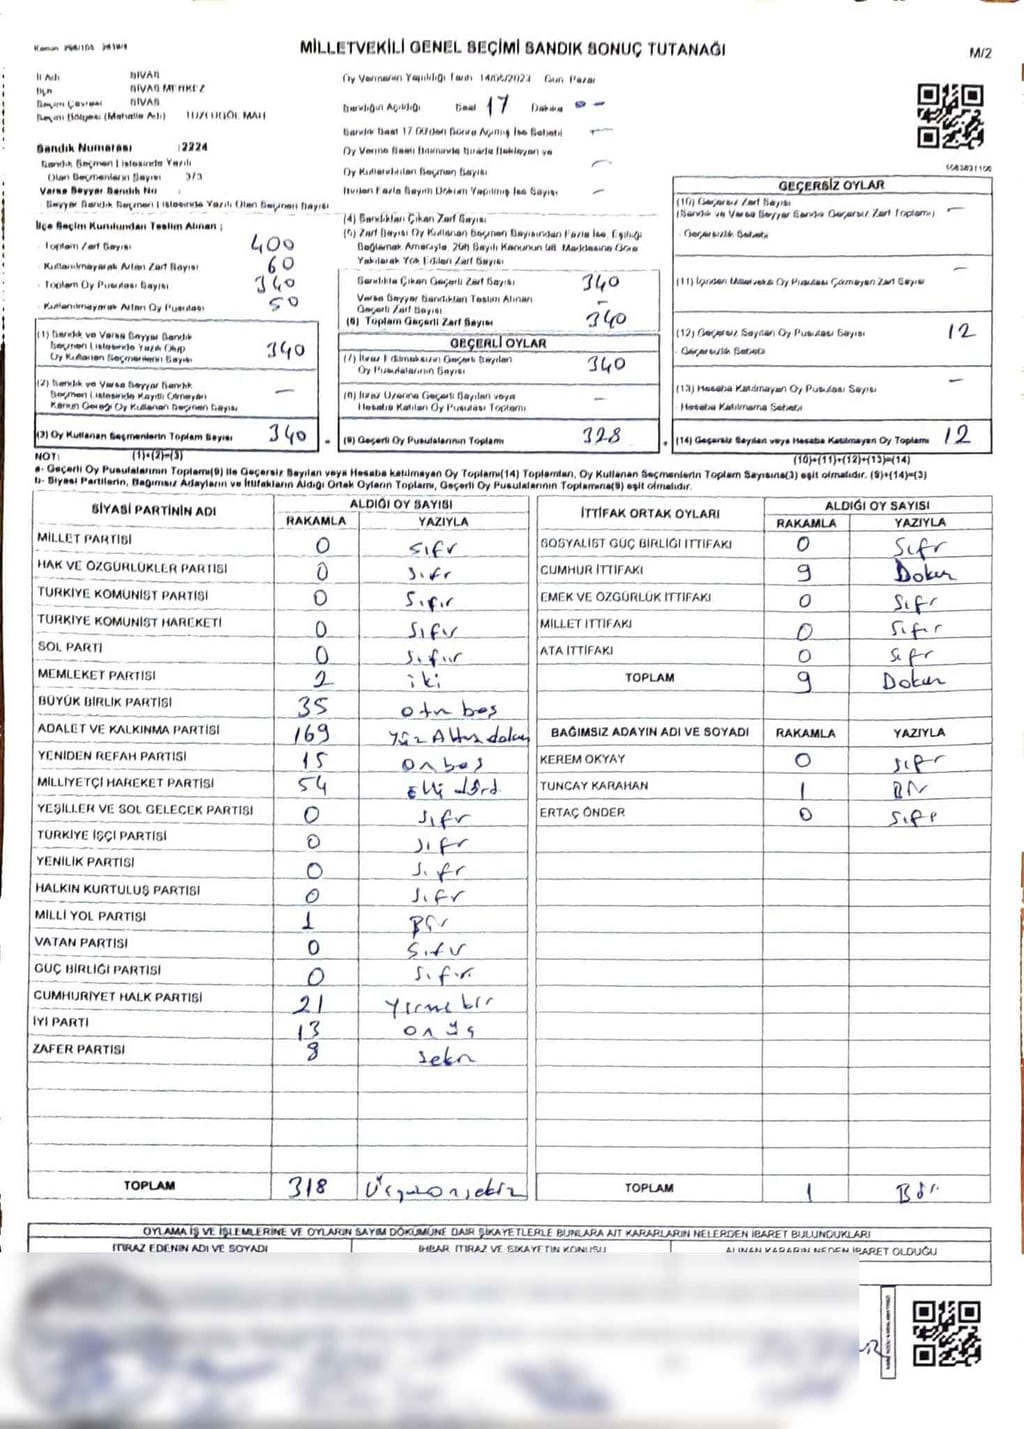 Kanun 298/105 2839/1
MİLLETVEKİLİ GENEL SEÇİMİ SANDIK SONUÇ TUTANAĞI
M/2
İl Adı : SİVAS
İlçe : SİVAS MERKEZ
Seçim Çevresi : SİVAS
Seçim Bölgesi (Mahalle Adı) :
Oy Vermenin Yapıldığı Tarih 14/05/2023 Gün Pazar
Sandığın Açıldığı Saat 17 Dakika
Sandık Numarası : 2224
Sandık Seçmen Listesinde Yazılı
Olan Seçmenlerin Sayısı : 373
Varsa Seyyar Sandık No :
Seyyar Sandık Seçmen Listesinde Yazılı Olan Seçmen Sayısı
Sandık Saat 17.00'den Sonra Açılmış İse Sebebi —
Oy Verme Saati Bitiminde Sırada Bekleyen ve
Oy Kullandırılan Seçmen Sayısı —
Birden Fazla Sayım Döküm Yapılmış İse Sayısı —
1083831106
İlçe Seçim Kurulundan Teslim Alınan ;
- Toplam Zarf Sayısı 400
- Kullanılmayarak Artan Zarf Sayısı 60
- Toplam Oy Pusulası Sayısı 340
- Kullanılmayarak Artan Oy Pusulası 50
(1) Sandık ve Varsa Seyyar Sandık
Seçmen Listesinde Yazılı Olup
Oy Kullanan Seçmenlerin Sayısı 340
(2) Sandık ve Varsa Seyyar Sandık
Seçmen Listesinde Kayıtlı Olmayan
Kanun Gereği Oy Kullanan Seçmen Sayısı —
(3) Oy Kullanan Seçmenlerin Toplam Sayısı 340
(4) Sandıktan Çıkan Zarf Sayısı
(5) Zarf Sayısı Oy Kullanan Seçmen Sayısından Fazla İse, Eşitliği
Sağlamak Amacıyla, 298 Sayılı Kanunun 98. Maddesine Göre
Yakılarak Yok Edilen Zarf Sayısı
Sandıkta Çıkan Geçerli Zarf Sayısı 340
Varsa Seyyar Sandıktan Teslim Alınan
Geçerli Zarf Sayısı —
(6) Toplam Geçerli Zarf Sayısı 340
GEÇERLİ OYLAR
(7) İtiraz Edilmeksizin Geçerli Sayılan
Oy Pusulalarının Sayısı 340
(8) İtiraz Üzerine Geçerli Sayılan veya
Hesaba Katılan Oy Pusulası Toplamı —
(9) Geçerli Oy Pusulalarının Toplamı 328
GEÇERSİZ OYLAR
(10) Geçersiz Zarf Sayısı
(Sandık ve Varsa Seyyar Sandık Geçersiz Zarf Toplamı) —
- Geçersizlik Sebebi
(11) İçinden Milletvekili Oy Pusulası Çıkmayan Zarf Sayısı —
(12) Geçersiz Sayılan Oy Pusulası Sayısı 12
- Geçersizlik Sebebi
(13) Hesaba Katılmayan Oy Pusulası Sayısı —
Hesaba Katılmama Sebebi
(14) Geçersiz Sayılan veya Hesaba Katılmayan Oy Toplamı 12
NOT: (1)+(2)=(3)
(10)+(11)+(12)+(13)=(14)
a- Geçerli Oy Pusulalarının Toplamı(9) ile Geçersiz Sayılan veya Hesaba katılmayan Oy Toplamı(14) Toplamları, Oy Kullanan Seçmenlerin Toplam Sayısına(3) eşit olmalıdır. (9)+(14)=(3)
b- Siyasi Partilerin, Bağımsız Adayların ve İttifakların Aldığı Ortak Oyların Toplamı, Geçerli Oy Pusulalarının Toplamına(9) eşit olmalıdır.
SİYASİ PARTİNİN ADI ALDIĞI OY SAYISI
RAKAMLA YAZIYLA
MİLLET PARTİSİ 0 Sıfr
HAK VE ÖZGÜRLÜKLER PARTİSİ 0 sıfr
TÜRKİYE KOMÜNİST PARTİSİ 0 Sıfır
TÜRKİYE KOMÜNİST HAREKETİ 0 Sıfır
SOL PARTİ 0 Sıfır
MEMLEKET PARTİSİ 2 iki
BÜYÜK BİRLİK PARTİSİ 35 otuz beş
ADALET VE KALKINMA PARTİSİ 169 Yüz Altmış dokuz
YENİDEN REFAH PARTİSİ 15 on beş
MİLLİYETÇİ HAREKET PARTİSİ 54 Elli dört
YEŞİLLER VE SOL GELECEK PARTİSİ 0 Sıfr
TÜRKİYE İŞÇİ PARTİSİ 0 Sıfr
YENİLİK PARTİSİ 0 Sıfr
HALKIN KURTULUŞ PARTİSİ 0 Sıfr
MİLLİ YOL PARTİSİ 1 Bir
VATAN PARTİSİ 0 Sıfır
GÜÇ BİRLİĞİ PARTİSİ 0 Sıfır
CUMHURİYET HALK PARTİSİ 21 Yirmi bir
İYİ PARTİ 13 on üç
ZAFER PARTİSİ 8 sekiz
TOPLAM 318 Üçyüzonsekiz
İTTİFAK ORTAK OYLARI ALDIĞI OY SAYISI
RAKAMLA YAZIYLA
SOSYALİST GÜÇ BİRLİĞİ İTTİFAKI 0 Sıfr
CUMHUR İTTİFAKI 9 Dokuz
EMEK VE ÖZGÜRLÜK İTTİFAKI 0 Sıfr
MİLLET İTTİFAKI 0 Sıfır
ATA İTTİFAKI 0 Sıfr
TOPLAM 9 Dokuz
BAĞIMSIZ ADAYIN ADI VE SOYADI RAKAMLA YAZIYLA
KEREM OKYAY 0 Sıfr
TUNCAY KARAHAN 1 Bir
ERTAÇ ÖNDER 0 Sıfr
TOPLAM 1 Bir
OYLAMA İŞ VE İŞLEMLERİNE VE OYLARIN SAYIM DÖKÜMÜNE DAİR ŞİKAYETLERLE BUNLARA AİT KARARLARIN NELERDEN İBARET BULUNDUKLARI
İTİRAZ EDENİN ADI VE SOYADI
İHBAR, İTİRAZ VE ŞİKAYETİN KONUSU
ALINAN KARARIN NEDEN İBARET OLDUĞU